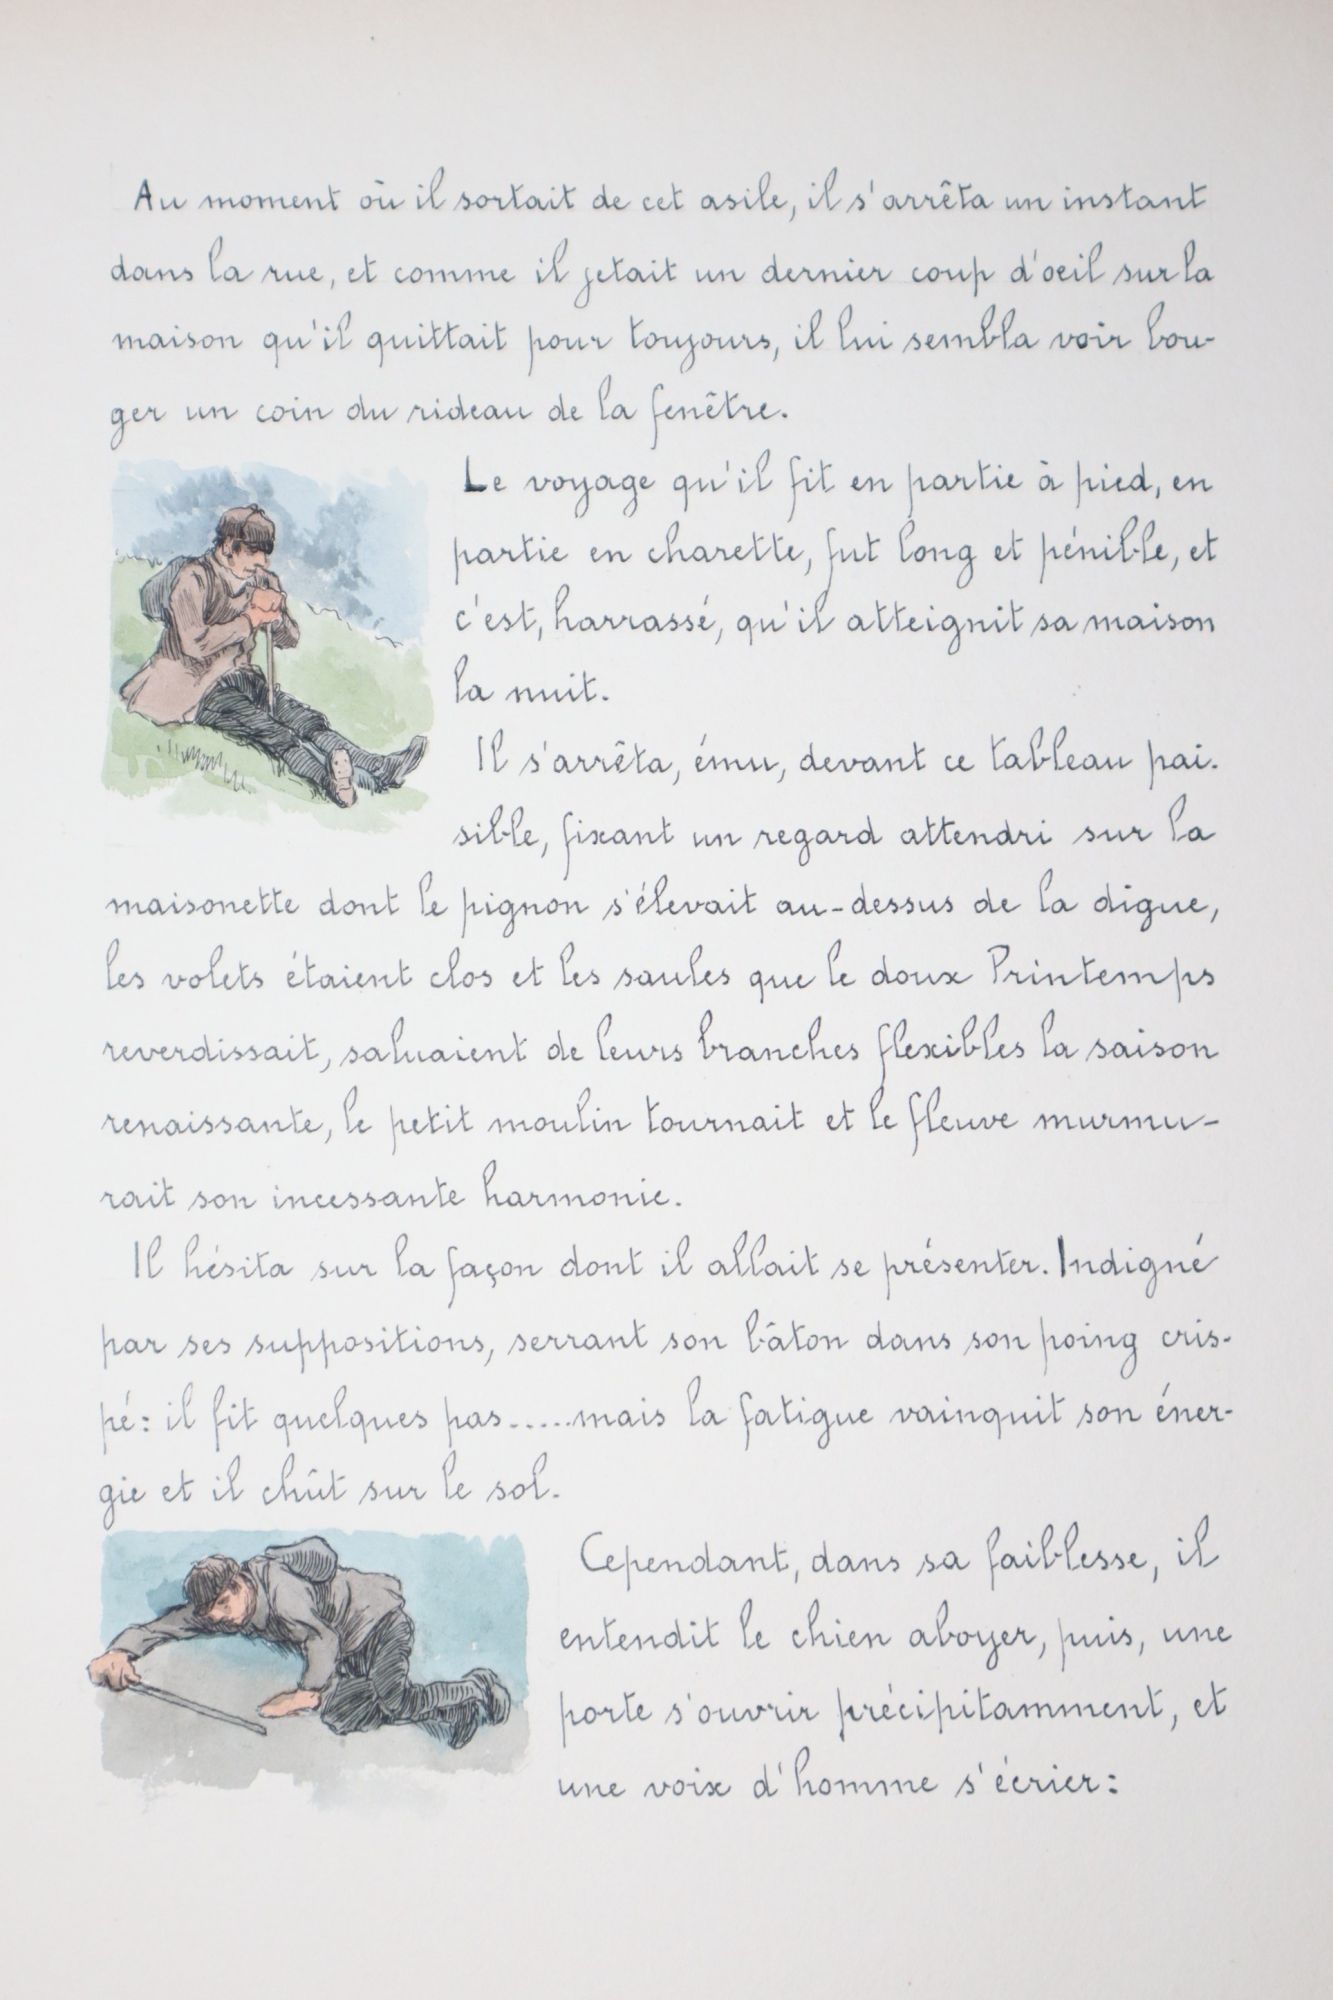 Au moment où il sortait de cet asile, il s'arrêta un instant
dans la rue, et comme il jetait un dernier coup d'oeil sur la
maison qu'il quittait pour toujours, il lui sembla voir bou-
ger un coin du rideau de la fenêtre.
Le voyage qu'il fit en partie à pied, en
partie en charette, fut long et pénible, et
c'est, harrassé, qu'il atteignit sa maison
la nuit.
Il s'arrêta, ému, devant ce tableau pai-
sible, fixant un regard attendri sur la
maisonette dont le pignon s'élevait au-dessus de la digue,
les volets étaient clos et les saules que le doux Printemps
reverdissait, saluaient de leurs branches flexibles la saison
renaissante, le petit moulin tournait et le fleuve murmu-
rait son incessante harmonie.
Il hésita sur la façon dont il allait se présenter. Indigné
par ses suppositions, serrant son bâton dans son poing cris-
pé: il fit quelques pas.....mais la fatigue vainquit son éner-
gie et il chût sur le sol.
Cependant, dans sa faiblesse, il
entendit le chien aboyer, puis, une
porte s'ouvrir précipitamment, et
une voix d'homme s'écrier: